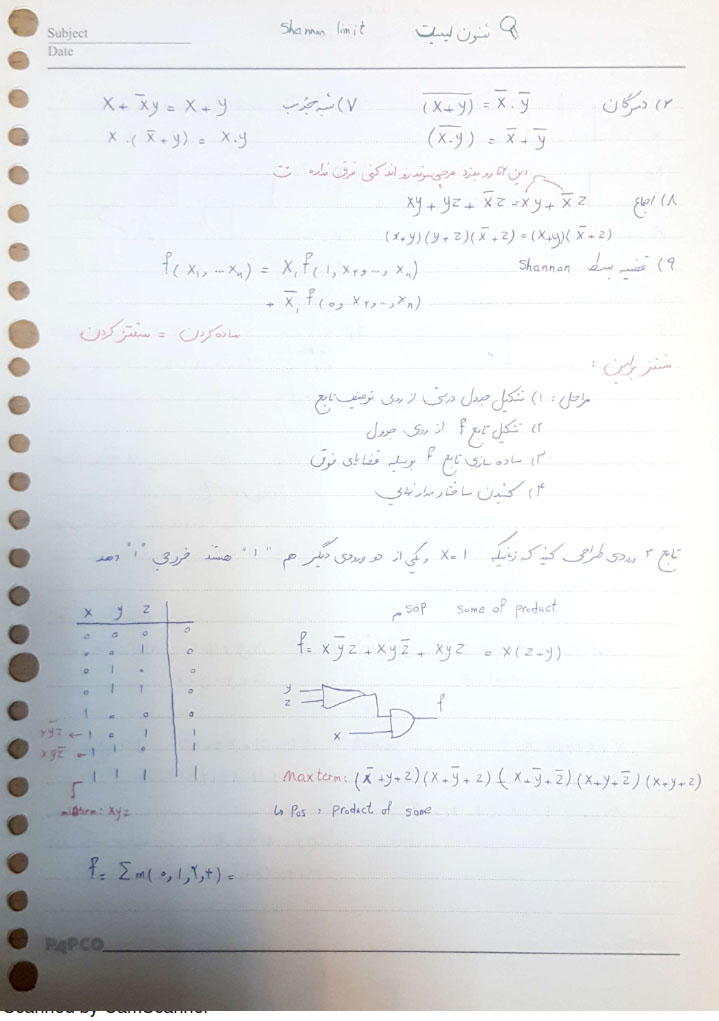 Subject
Date
Shannon limit شنون لیمیت
۶) دمرگان (x+y)̅ = x̅ . y̅
(x.y)̅ = x̅ + y̅
۷) شبه جذب x + x̅y = x + y
x . (x̅ + y) = x.y
این ۲ تا رو فرق نداره
۸) اجماع xy + yz + x̅z = xy + x̅z
(x+y)(y+z)(x̅+z) = (x+y)(x̅+z)
۹) قضیه بسط Shannon f(x₁, ... xₙ) = x₁ f(1, x₂, ..., xₙ)
+ x̅₁ f(0, x₂, ..., xₙ)
ساده کردن = سنتز کردن
سنتز بولین :
مراحل : ۱) تشکیل جدول درستی از روی توصیف تابع
۲) تشکیل تابع f از روی جدول
۳) ساده سازی تابع f بوسیله قضایای فوق
۴) کشیدن ساختار مدار نهایی
تابع ۳ ورودی طراحی کنید که زمانیکه x=1 و یکی از دو ورودی دیگر هم "1" هستند خروجی "1" دهد
x y z
0 0 0 0
0 0 1 0
0 1 0 0
0 1 1 0
1 0 0 0
xy̅z ← 1 0 1 1
xyz̅ ← 1 1 0 1
1 1 1 1
minterm: xyz
SOP some of product
f = xy̅z + xyz̅ + xyz = x(z+y)
y
z
x
f
Maxterm: (x̅+y+z)(x+y̅+z)(x+y̅+z̅)(x+y+z̅)(x+y+z)
↳ Pos : product of some
f = Σm(0,1,2,3) =
P4PCO
Scanned by CamScanner